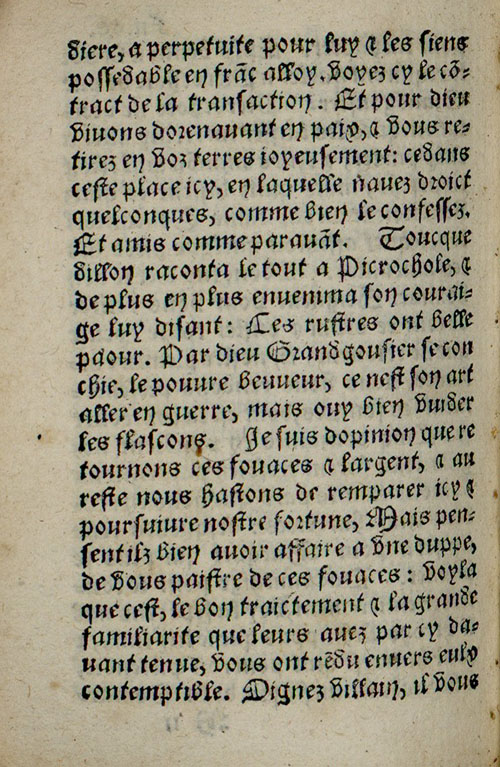 diere, a perpetuite pour luy ⁊ les siens
possedable en frãc alloy. Voyez cy le cõ-
tract de la transaction. Et pour dieu
viuons dorenauant en paix, ⁊ vous re-
tirez en voz terres ioyeusement: cedans
ceste place icy, en laquelle nauez droict
quelconques, comme bien le confessez.
Et amis comme parauãt. Toucque
dillon raconta le tout a Picrochole, ⁊
de plus en plus enuenima son courai-
ge luy disant: Ces rustres ont belle
paour. Par dieu Grandgousier se con
chie, le pouure beuueur, ce nest son art
aller en guerre, mais ouy bien vuider
les flascons. Je suis dopinion que re
tournons ces fouaces ⁊ largent, ⁊ au
reste nous hastons de remparer icy ⁊
poursuiure nostre fortune, Mais pen-
sent ilz bien auoir affaire a vne duppe,
de vous paistre de ces fouaces: voyla
que cest, le bon traictement ⁊ la grande
familiarite que leurs auez par cy da-
uant tenue, vous ont rẽdu enuers eulx
contemptible. Oignez villain, il vous